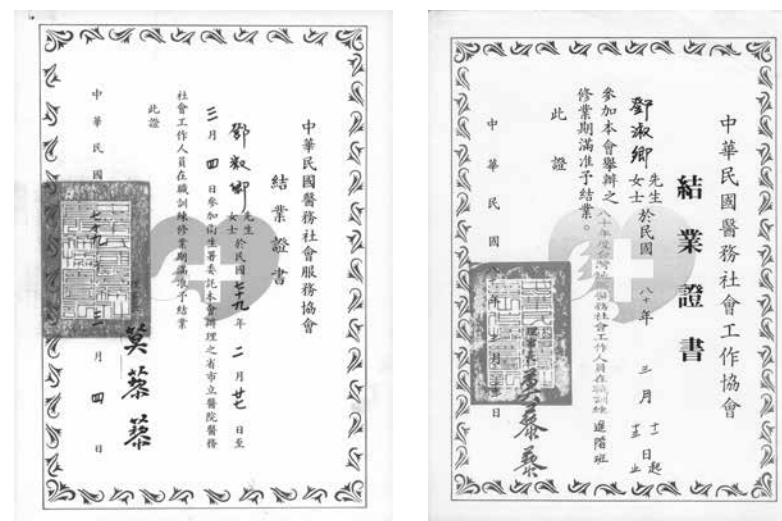 中華民國醫務社會服務協會
結業證書
鄧淑卿 先生
女士 於民國七十九年二月廿七日至
三月四日參加衛生署委託本會辦理之省市立醫院醫務
社會工作人員在職訓練修業期滿准予結業
此證
莫藜藜
中華民國七十九年三月四日
中華民國醫務社會工作協會
結業證書
鄧淑卿 先生
女士 於民國八十年三月十一日起
十五止
參加本會舉辦之八十年度台灣地區醫務社會工作人員在職訓練進階班
修業期滿准予結業。
此證
理事長 莫藜藜
中華民國八十年三月十五日